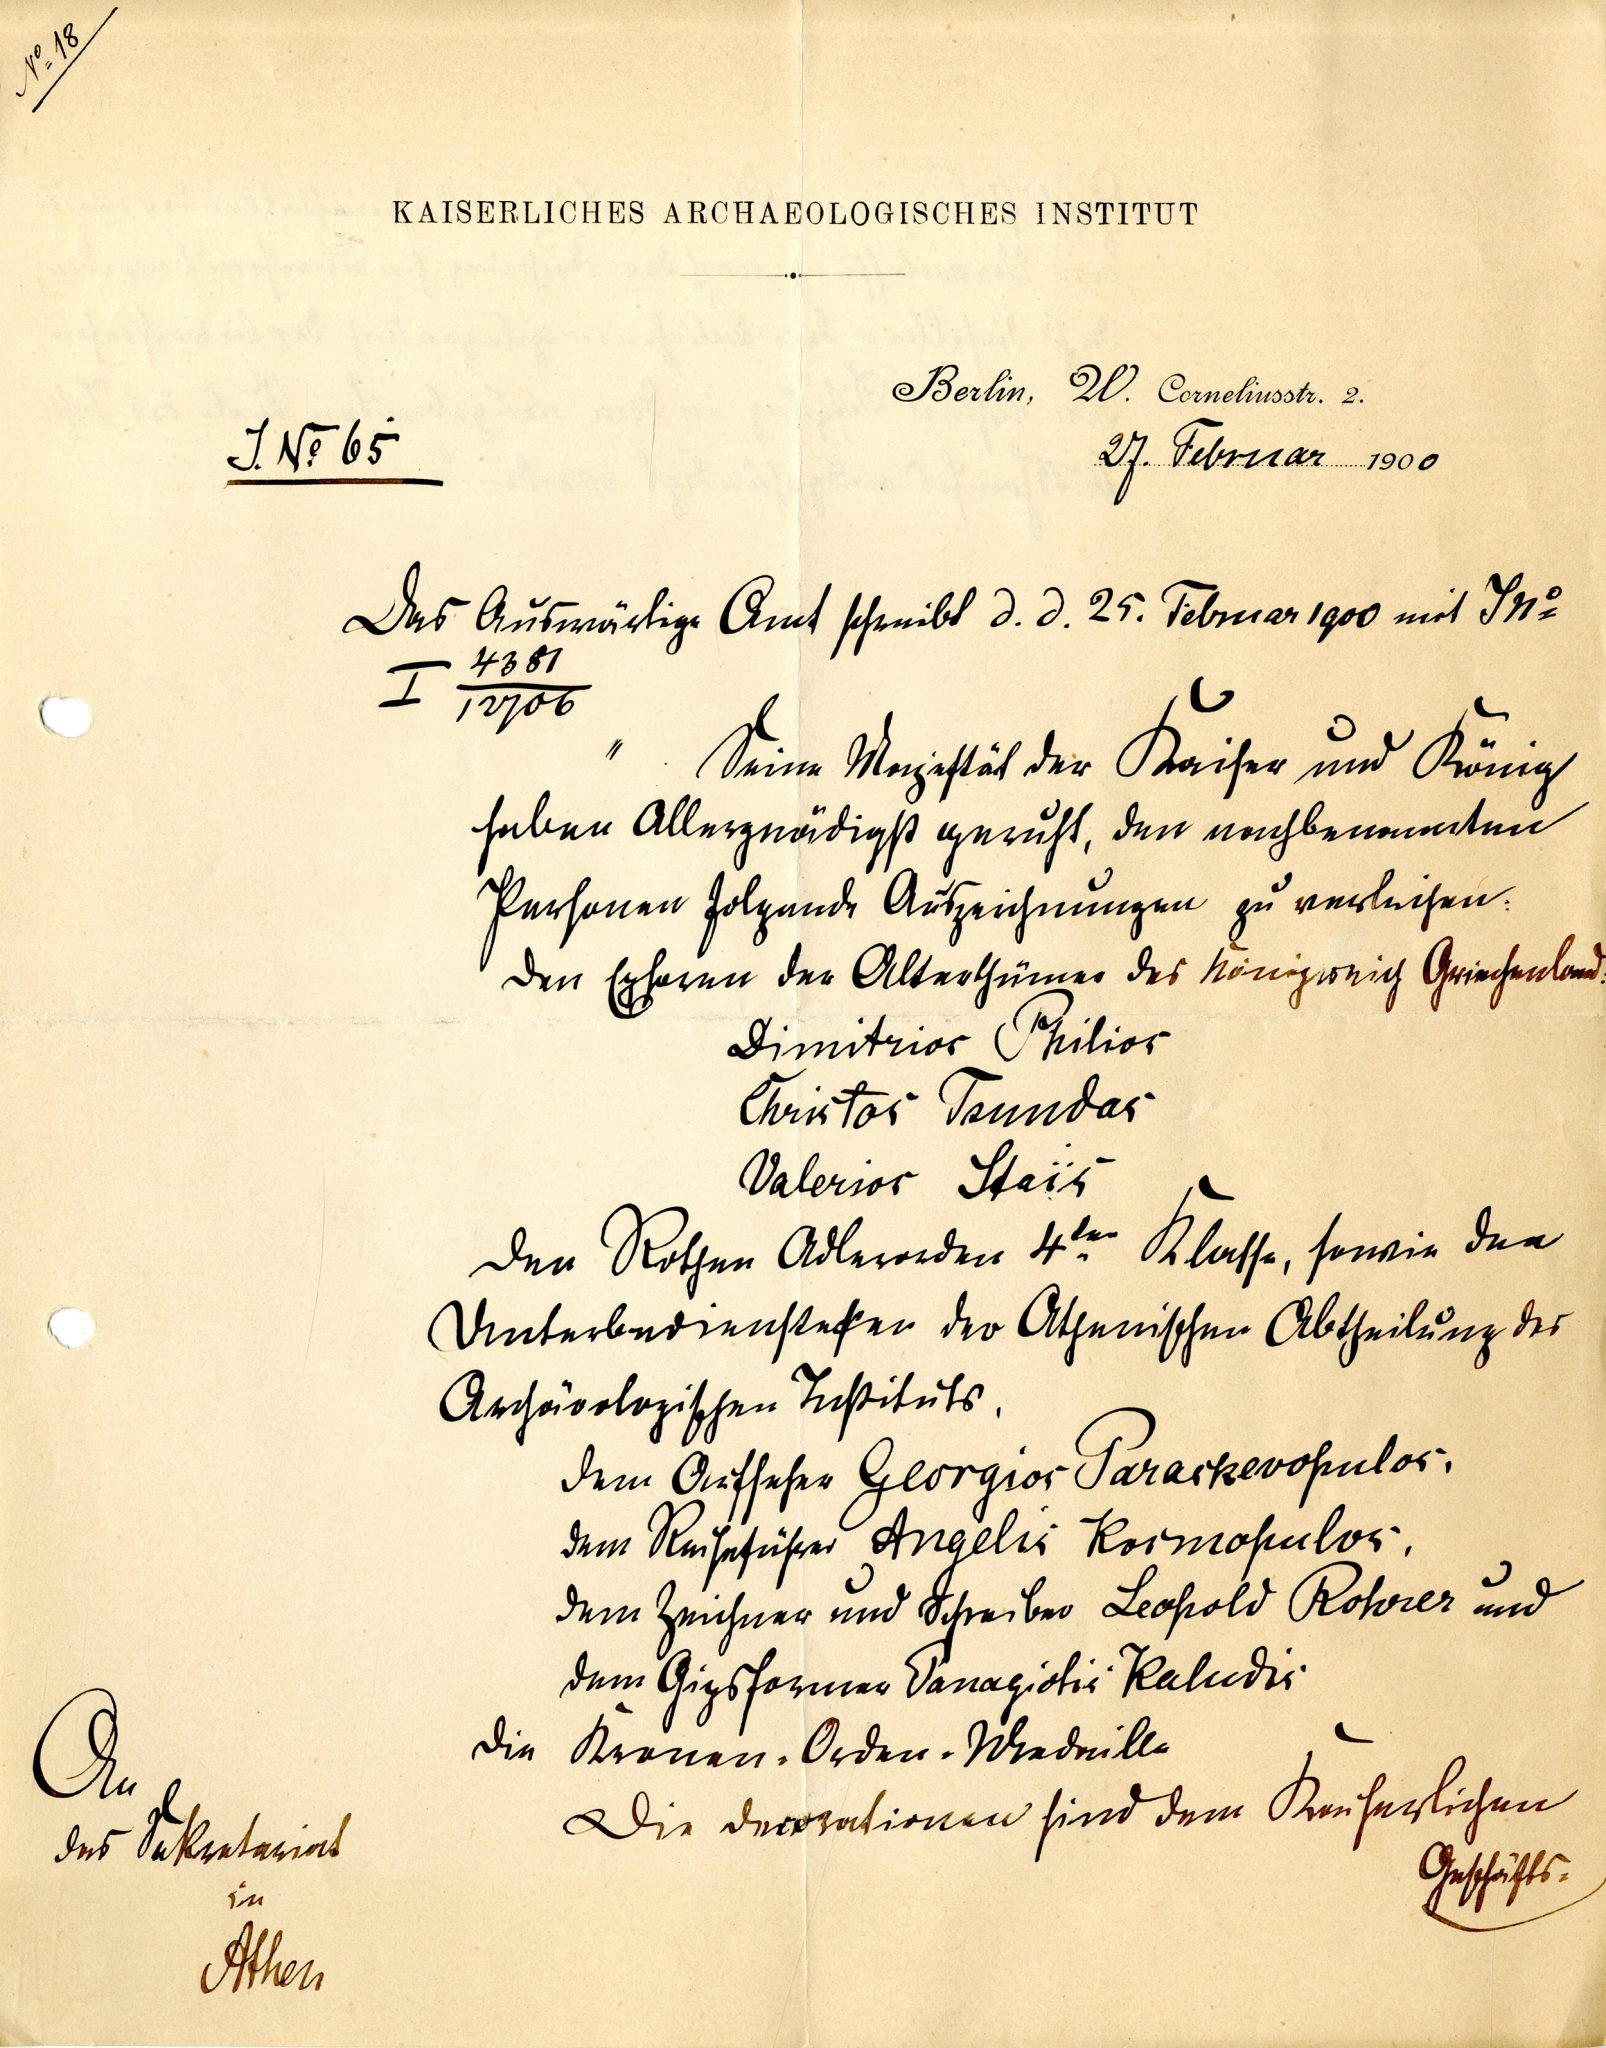 No 18
KAISERLICHES ARCHAEOLOGISCHES INSTITUT
Berlin, W. Corneliusstr. 2.
J. No 65
27. Februar 1900
Das Auswärtige Amt schreibt d. d. 25. Februar 1900 mit JNo
I 4381
12706
" Seine Majestät der Kaiser und König
haben Allergnädigst geruht, den nachbenannten
Personen folgende Auszeichnungen zu verleihen:
den Ephoren der Alterthümer des Königreich Griechenland:
Dimitrios Philios
Christos Tsundas
Valerios Staïs
den Rothen Adlerorden 4ter Klasse, sowie den
Unterbediensteten der Athenischen Abtheilung des
Archäologischen Instituts,
dem Aufseher Georgios Paraskevopulos,
dem Reiseführer Angelis Kosmopulos,
dem Zeichner und Schreiber Leopold Rohrer und
dem Gipsformer Panagiotis Kaludis
die Kronen-Orden-Medaille
Die Decorationen sind dem Kaiserlichen
Geschäfts-
An
das Sekretariat
in
Athen